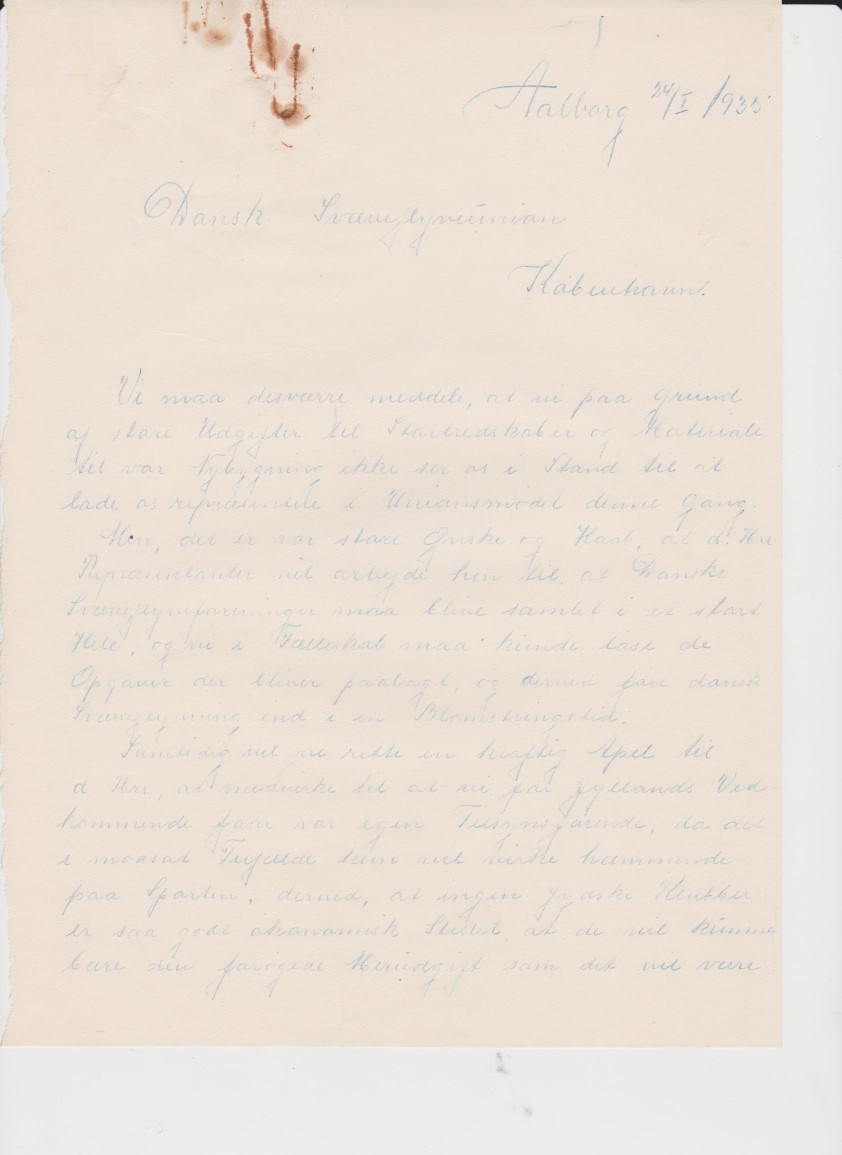 Aalborg 24/I 1935
Dansk Svæveflyveunion
København.
Vi maa desværre meddele, at vi paa Grund
af store Udgifter til Startredskaber og Materiale
til vor Nybygning ikke ser os i Stand til at
lade os repræsentere i Unionsmødet denne Gang.
Men, det er vor store Ønske og Haab, at d. Hrr
Repræsentanter vil arbejde hen til, at Danske
Svæveflyveforeninger maa blive samlet i et stort
Hele, og vi i Fælleskab maa kunde løse de
Opgaver der bliver paabagt, og derved føre dansk
Svæveflyvning ind i en Blomstringstid.
Samtidig vil vi rette en kraftig Apel til
d Hrr, at medvirke til at vi for Jyllands Ved-
kommende faar vor egen Tilsynsførende, da det
i modsat Tilfælde kun vil virke hæmmende
paa Sporten, derved, at ingen jydske Klubber
er saa godt økonomisk Stillet at de vil kunne
bære den forøgede Merudgift som det vil være